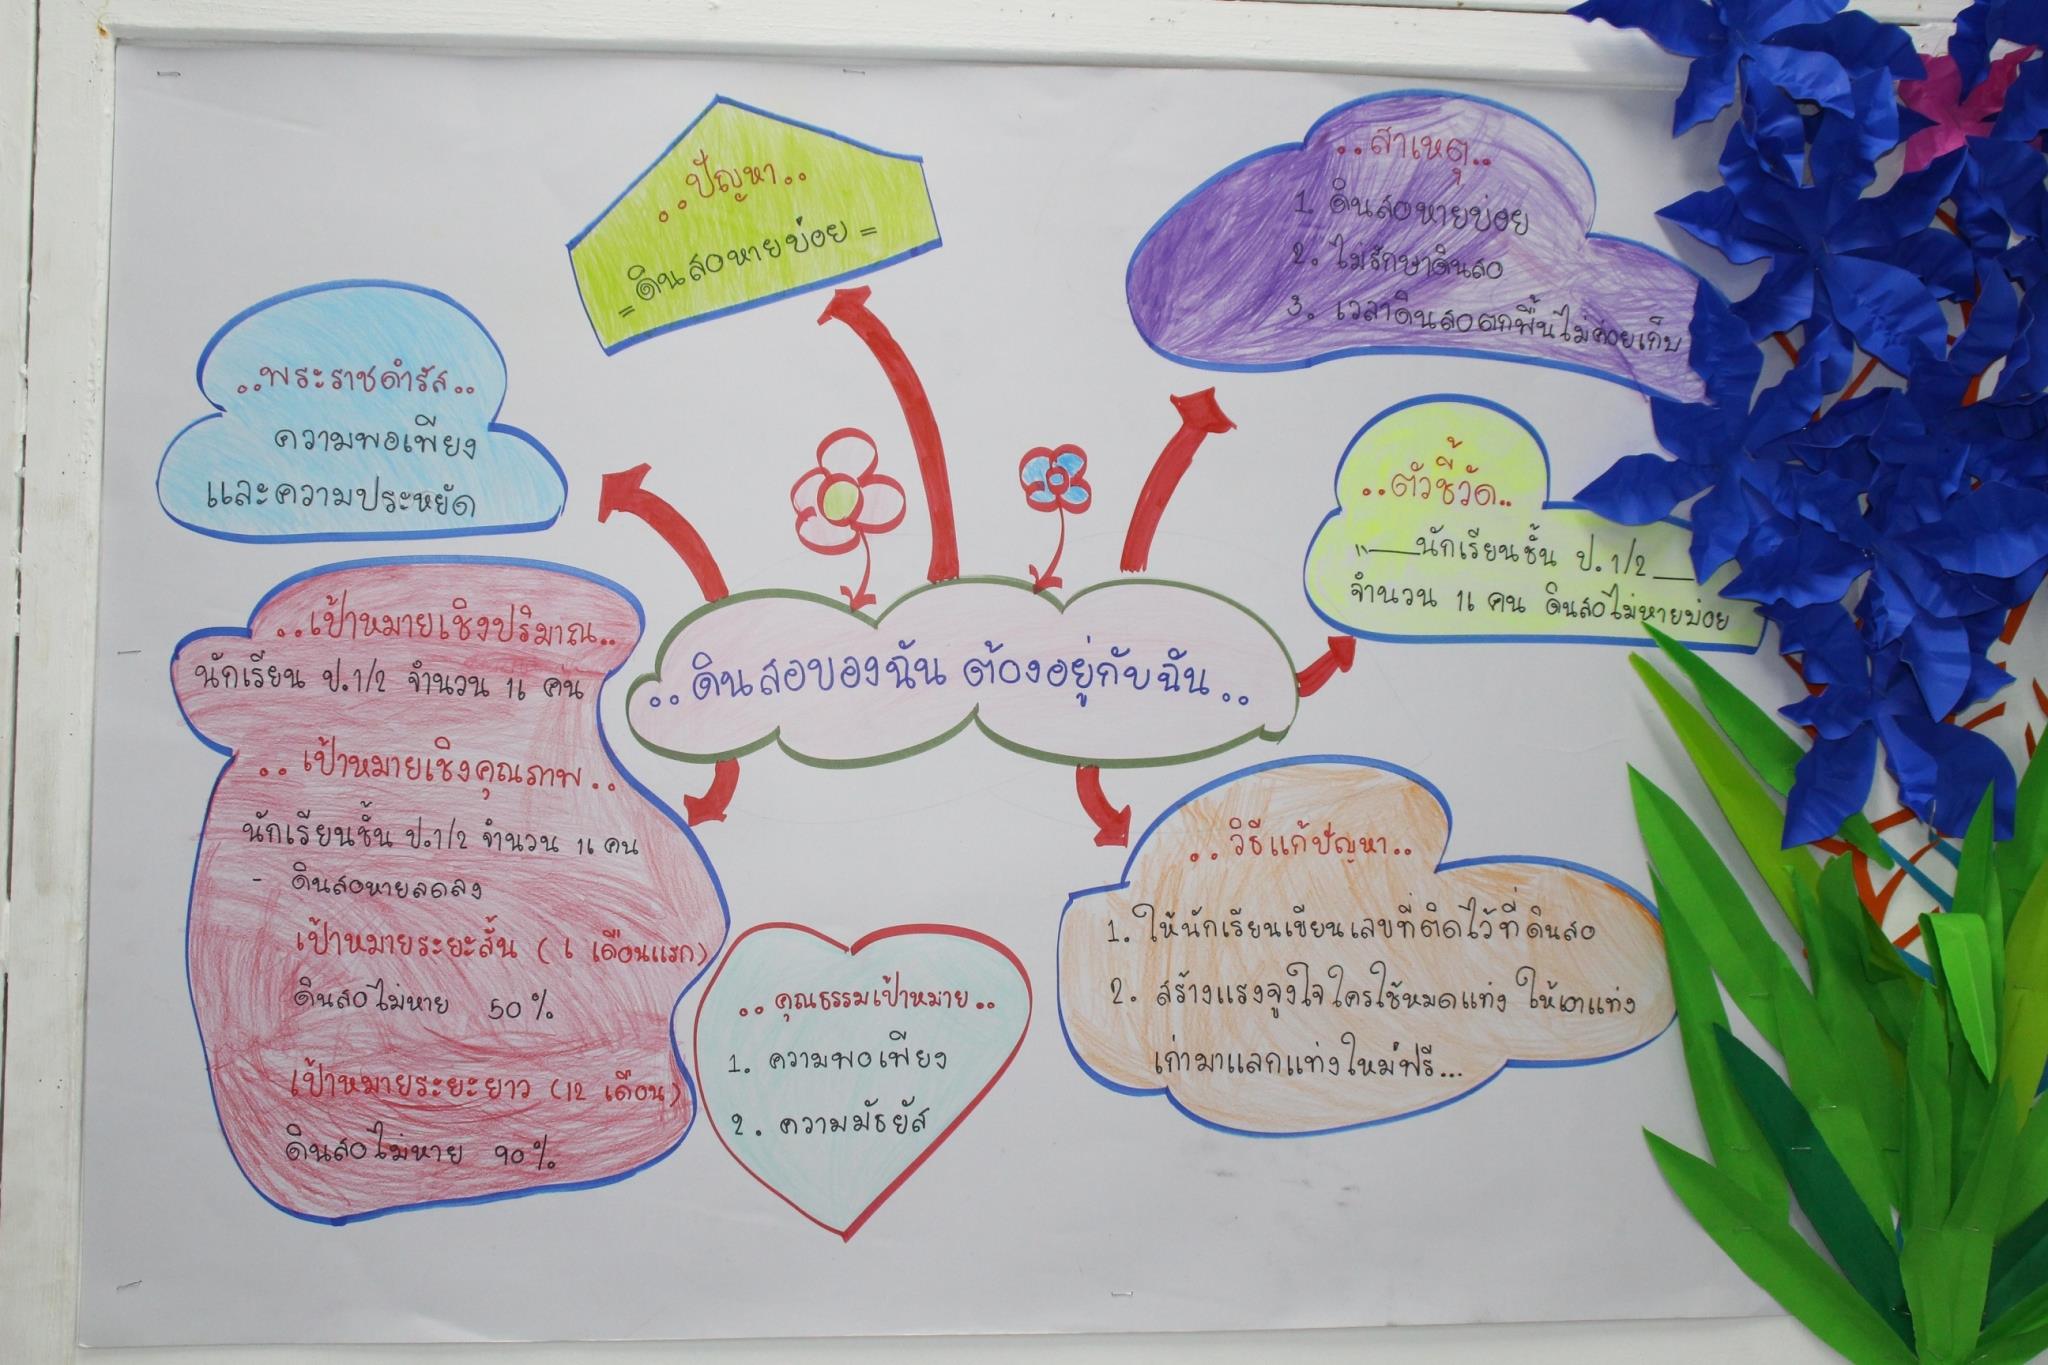 ..ปัญหา..
= ดินสอหายบ่อย =
..สาเหตุ..
1. ดินสอหายบ่อย
2. ไม่รักษาดินสอ
3. เวลาดินสอตกพื้นไม่ค่อยเก็บ
..พระราชดำรัส..
ความพอเพียง
และความประหยัด
..ตัวชี้วัด..
"__นักเรียนชั้น ป.1/2__
จำนวน 16 คน ดินสอไม่หายบ่อย
..ดินสอของฉัน ต้องอยู่กับฉัน..
..เป้าหมายเชิงปริมาณ..
นักเรียน ป.1/2 จำนวน 16 คน
..เป้าหมายเชิงคุณภาพ..
นักเรียนชั้น ป.1/2 จำนวน 16 คน
- ดินสอหายลดลง
เป้าหมายระยะสั้น (6 เดือนแรก)
ดินสอไม่หาย 50%
เป้าหมายระยะยาว (12 เดือน)
ดินสอไม่หาย 90%
..คุณธรรมเป้าหมาย..
1. ความพอเพียง
2. ความมัธยัส
..วิธีแก้ปัญหา..
1. ให้นักเรียนเขียนเลขที่ติดไว้ที่ดินสอ
2. สร้างแรงจูงใจใครใช้หมดแท่ง ให้เอาแท่ง
เก่ามาแลกแท่งใหม่ฟรี...